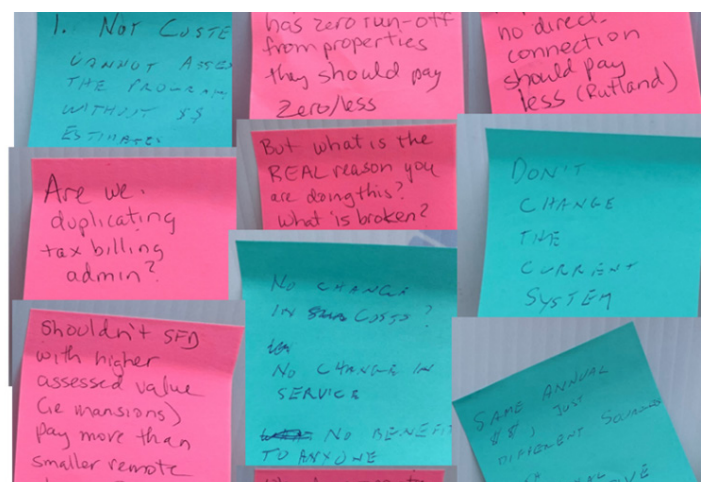 1. NOT COSTE
CANNOT ASSE
THE PROGRAM
WITHOUT $$
ESTIMATES
has zero run-off
from properties
they should pay
zero/less
no direct
connection
should pay
less (Rutland)
Are we
duplicating
tax billing
admin?
But what is the
REAL reason you
are doing this?
What is broken?
DON'T
CHANGE
THE
CURRENT
SYSTEM
Shouldn't SFD
with higher
assessed value
(ie mansions)
pay more than
smaller remote
NO CHANGE
IN COSTS?
NO CHANGE IN
SERVICE
NO BENEFIT
TO ANYONE
SAME ANNUAL
$$, JUST
DIFFERENT